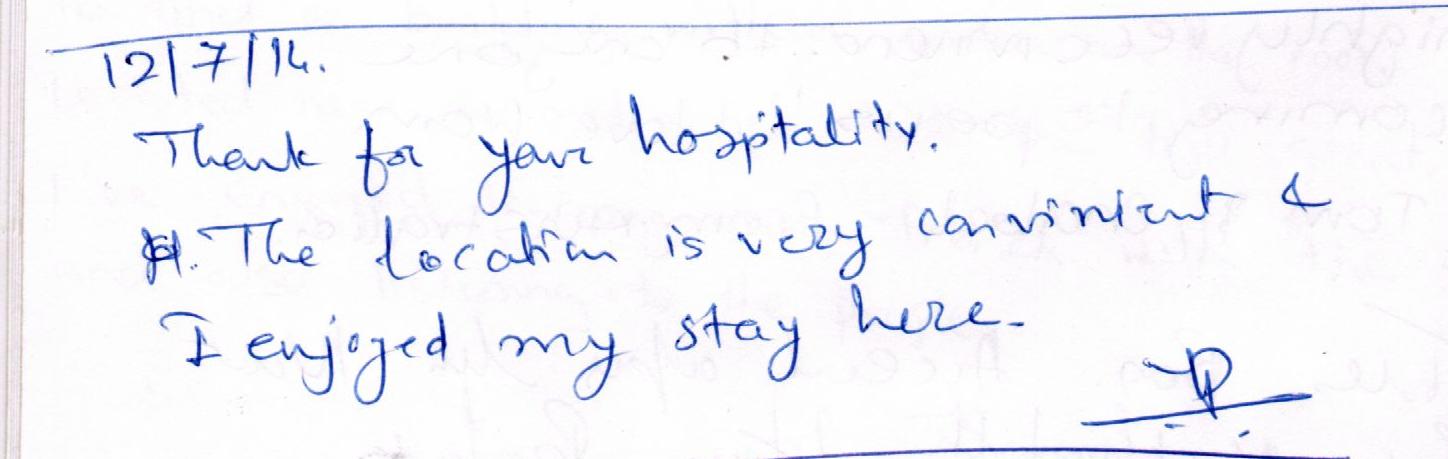 12/7/14.
Thank for your hospitality.
The location is very convinient &
I enjoyed my stay here.